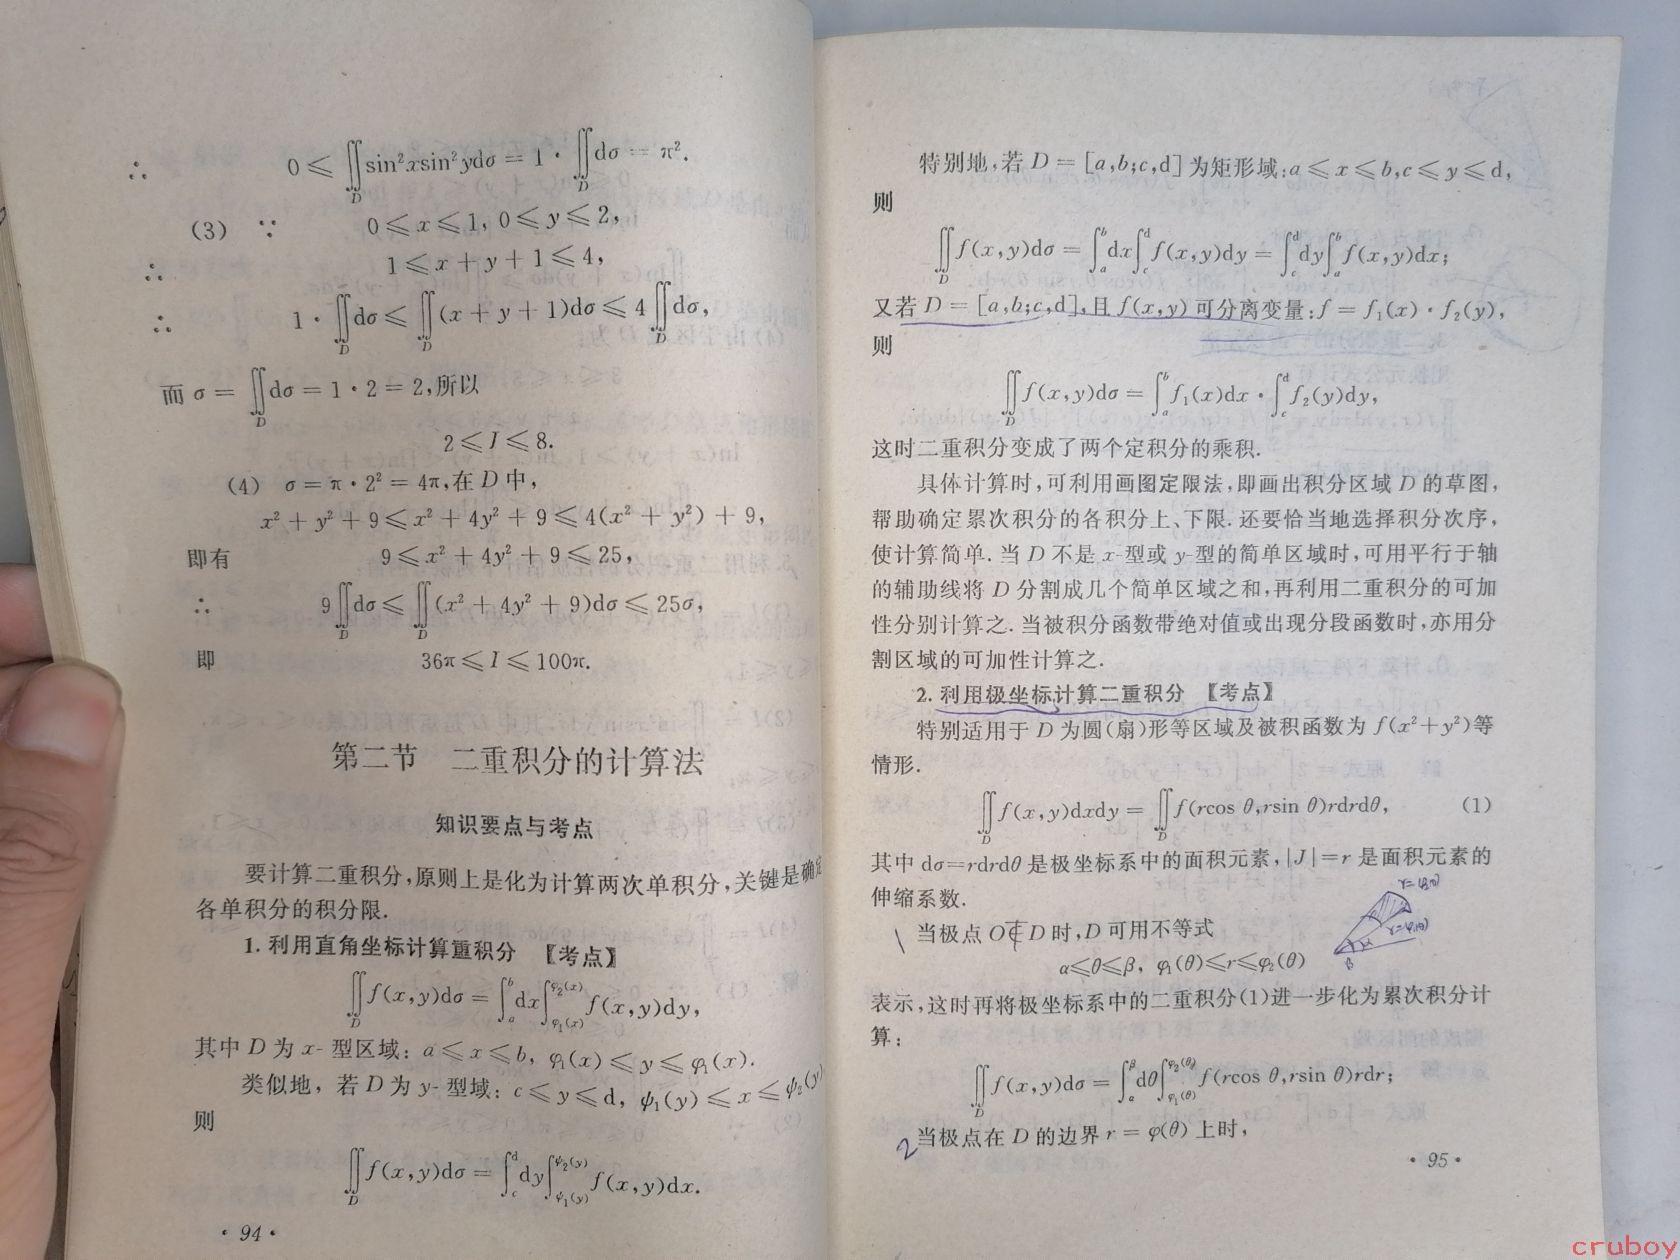 ∴ 0 ⩽ ∬_D sin²xsin²ydσ = 1 · ∬_D dσ = π².
(3) ∵ 0 ⩽ x ⩽ 1, 0 ⩽ y ⩽ 2,
∴ 1 ⩽ x + y + 1 ⩽ 4,
∴ 1 · ∬_D dσ ⩽ ∬_D (x + y + 1)dσ ⩽ 4∬_D dσ,
而 σ = ∬_D dσ = 1 · 2 = 2,所以
2 ⩽ I ⩽ 8.
(4) σ = π · 2² = 4π,在 D 中,
x² + y² + 9 ⩽ x² + 4y² + 9 ⩽ 4(x² + y²) + 9,
即有 9 ⩽ x² + 4y² + 9 ⩽ 25,
∴ 9∬_D dσ ⩽ ∬_D (x² + 4y² + 9)dσ ⩽ 25σ,
即 36π ⩽ I ⩽ 100π.
第二节 二重积分的计算法
知识要点与考点
要计算二重积分,原则上是化为计算两次单积分,关键是确定
各单积分的积分限.
1. 利用直角坐标计算重积分 【考点】
∬_D f(x,y)dσ = ∫_a^b dx∫_{φ₁(x)}^{φ₂(x)} f(x,y)dy,
其中 D 为 x- 型区域: a ⩽ x ⩽ b, φ₁(x) ⩽ y ⩽ φ₁(x).
类似地, 若 D 为 y- 型域: c ⩽ y ⩽ d, ψ₁(y) ⩽ x ⩽ ψ₂(y)
则
∬_D f(x,y)dσ = ∫_c^d dy∫_{ψ₁(y)}^{ψ₂(y)} f(x,y)dx.
· 94 ·
特别地,若 D = [a,b;c,d] 为矩形域:a ⩽ x ⩽ b,c ⩽ y ⩽ d,
则
∬_D f(x,y)dσ = ∫_a^b dx∫_c^d f(x,y)dy = ∫_c^d dy∫_a^b f(x,y)dx;
又若 D = [a,b;c,d],且 f(x,y) 可分离变量:f = f₁(x) · f₂(y),
则
∬_D f(x,y)dσ = ∫_a^b f₁(x)dx · ∫_c^d f₂(y)dy,
这时二重积分变成了两个定积分的乘积.
具体计算时,可利用画图定限法,即画出积分区域 D 的草图,
帮助确定累次积分的各积分上、下限. 还要恰当地选择积分次序,
使计算简单. 当 D 不是 x-型或 y-型的简单区域时,可用平行于轴
的辅助线将 D 分割成几个简单区域之和,再利用二重积分的可加
性分别计算之. 当被积分函数带绝对值或出现分段函数时,亦用分
割区域的可加性计算之.
2. 利用极坐标计算二重积分 【考点】
特别适用于 D 为圆(扇)形等区域及被积函数为 f(x²+y²)等
情形.
∬_D f(x,y)dxdy = ∬_D f(rcos θ,rsin θ)rdrdθ, (1)
其中 dσ=rdrdθ 是极坐标系中的面积元素,|J|=r 是面积元素的
伸缩系数.
1 当极点 O∉D 时,D 可用不等式
α⩽θ⩽β, φ₁(θ)⩽r⩽φ₂(θ)
表示,这时再将极坐标系中的二重积分(1)进一步化为累次积分计
算:
∬_D f(x,y)dσ = ∫_α^β dθ∫_{φ₁(θ)}^{φ₂(θ)} f(rcos θ,rsin θ)rdr;
2 当极点在 D 的边界 r = φ(θ) 上时,
· 95 ·
cruboy